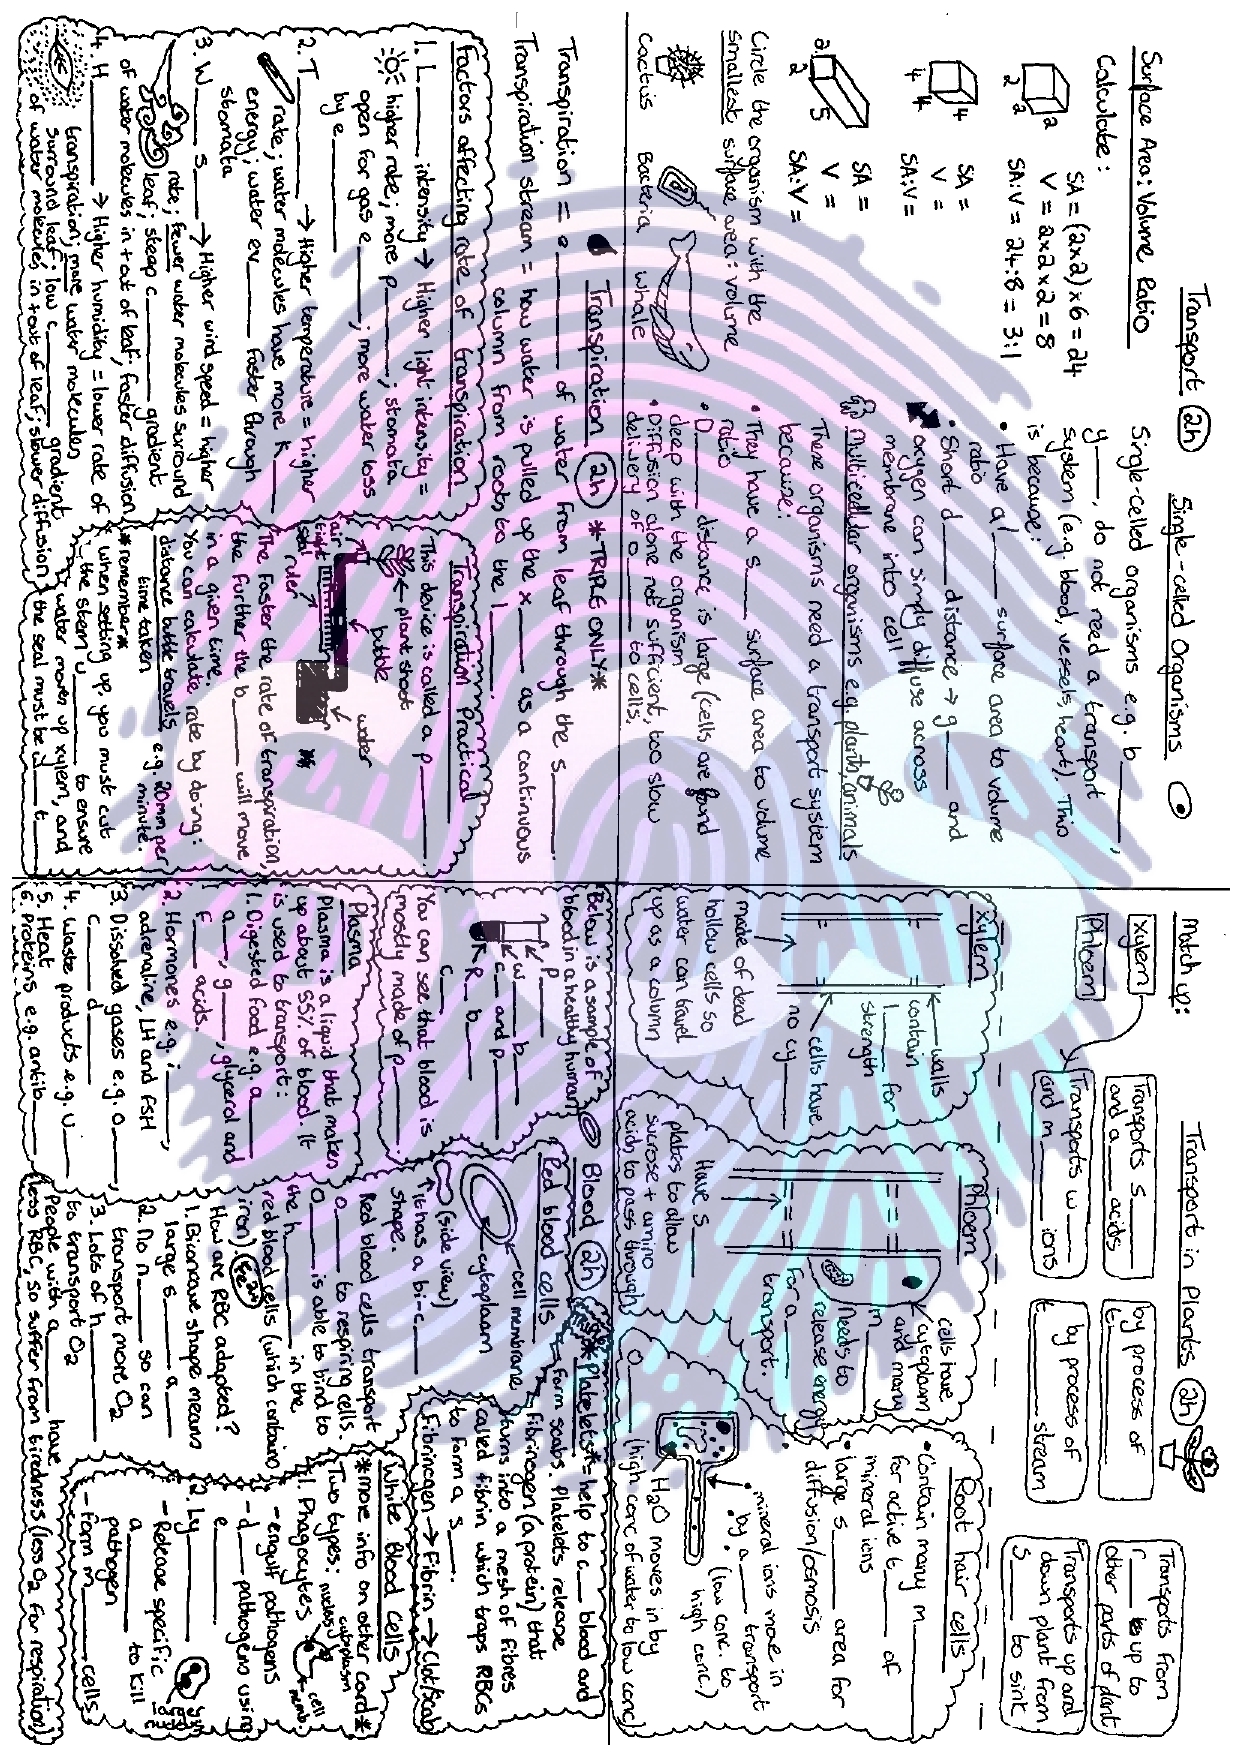 Transport 2h
Surface Area: Volume Ratio
Calculate:
2
2
2
SA = (2x2) x 6 = 24
V = 2x2x2 = 8
SA:V = 24:8 = 3:1
4
4
4
SA =
V =
SA:V =
2
2
5
SA =
V =
SA:V =
Circle the organism with the
smallest surface area: volume
cactus Bacteria whale
Single-celled Organisms
Single-celled organisms e.g. b____,
y____, do not need a transport
system (e.g. blood, vessels, heart). Two
is because:
• Have a l____ surface area to volume
ratio
• Short d____ distance → g____ and
oxygen can simply diffuse across
membrane into cell
multicellular organisms e.g. plants, animals
These organisms need a transport system
because:
• They have a s____ surface area to volume
ratio
• D____ distance is large (cells are found
deep with the organism
• Diffusion alone not sufficient, too slow
delivery of o____ to cells.
Transpiration 2h *TRIPLE ONLY*
Transpiration = e____ of water from leaf through the s____.
Transpiration stream = how water is pulled up the x____ as a continuous
column from roots to the l____.
Factors affecting rate of transpiration
1. L____ intensity → Higher light intensity =
higher rate; more p____; stomata
open for gas e____; more water loss
by e____
2. T____ → Higher temperature = higher
rate; water molecules have more k____
energy; water ev____ faster through
stomata
3. W____ s____ → Higher wind speed = higher
rate; fewer water molecules surround
leaf; steep c____ gradient
of water molecules in + out of leaf; faster diffusion
4. H____ → Higher humidity = lower rate of
transpiration; more water molecules
surround leaf; low c____ gradient
of water molecules in + out of leaf; slower diffusion
Transpiration practical
This device is called a p____.
plant shoot
bubble
water
air
tight
seal
ruler
The faster the rate of transpiration,
the further the b____ will move
in a given time.
You can calculate rate by doing:
distance bubble travels
time taken
e.g. 20mm per
minute
*remember*
* when setting up, you must cut
the stem u____ to ensure
water moves up xylem, and
the seal must be a____ t____
Transport in Plants 2h
Match up:
Xylem
Phloem
Transports s____
and a____ acids
Transports w____
and m____ ions
by process of
t____
by process of
t____ stream
Transports from
r____ up to
other parts of plant
Transports up and
down plant from
s____ to sink
Xylem
walls
contain
l____ for
strength
cells have
no cy____
made of dead
hollow cells so
water can travel
up as a column
Phloem
cells have
cytoplasm
and many
m____
(needs to
release energy
for a____
transport.
Have s____
plates to allow
sucrose + amino
acids to pass through
Root hair cells
• Contain many m____
for active t____ of
mineral ions
• large s____ area for
diffusion/osmosis
• mineral ions move in
by a____ transport
(low conc. to
high conc.)
• H₂O moves in by
o____ (high conc of water to low conc)
Blood 2h
Below is a sample of
blood in a healthy human
P____
w____ b____
c____ and p____
R____ b____
c____
You can see that blood is
mostly made of p____.
Plasma
Plasma is a liquid that makes
up about 55% of blood. It
is used to transport:
1. Digested food e.g. a____
a____, g____, glycerol and
f____ acids.
2. Hormones e.g. i____,
adrenaline, LH and FSH
3. Dissolved gases e.g. O____,
c____ d____
4. Waste products e.g. u____
5. Heat
6. Proteins e.g. antib____
Red blood cells
cell membrane
cytoplasm
(side view)
It has a bi-c____
shape.
Red blood cells transport
o____ to respiring cells.
O____ is able to bind to
the h____ in the
red blood cells (which contains
iron). Fe²⁺
How are RBC adapted?
1. Biconcave shape means
large s____ a____
2. No n____ so can
transport more O₂
3. Lots of h____
to transport O₂
People with a____ have
less RBC, so suffer from tiredness (less O₂ for respiration)
*Platelets* = help to c____ blood and
form scabs. Platelets release
fibrinogen (a protein) that
turns into a mesh of fibres
called fibrin which traps RBCs
to form a s____.
Fibrinogen → Fibrin → Clot/scab
White Blood Cells
*more info on other card*
Two types:
1. Phagocytes
nucleus
cytoplasm
cell
memb.
- engulf pathogens
- d____ pathogens using
e____
2. Ly____
- Release specific
a____ to kill
pathogen
- Form m____ cells
SCS